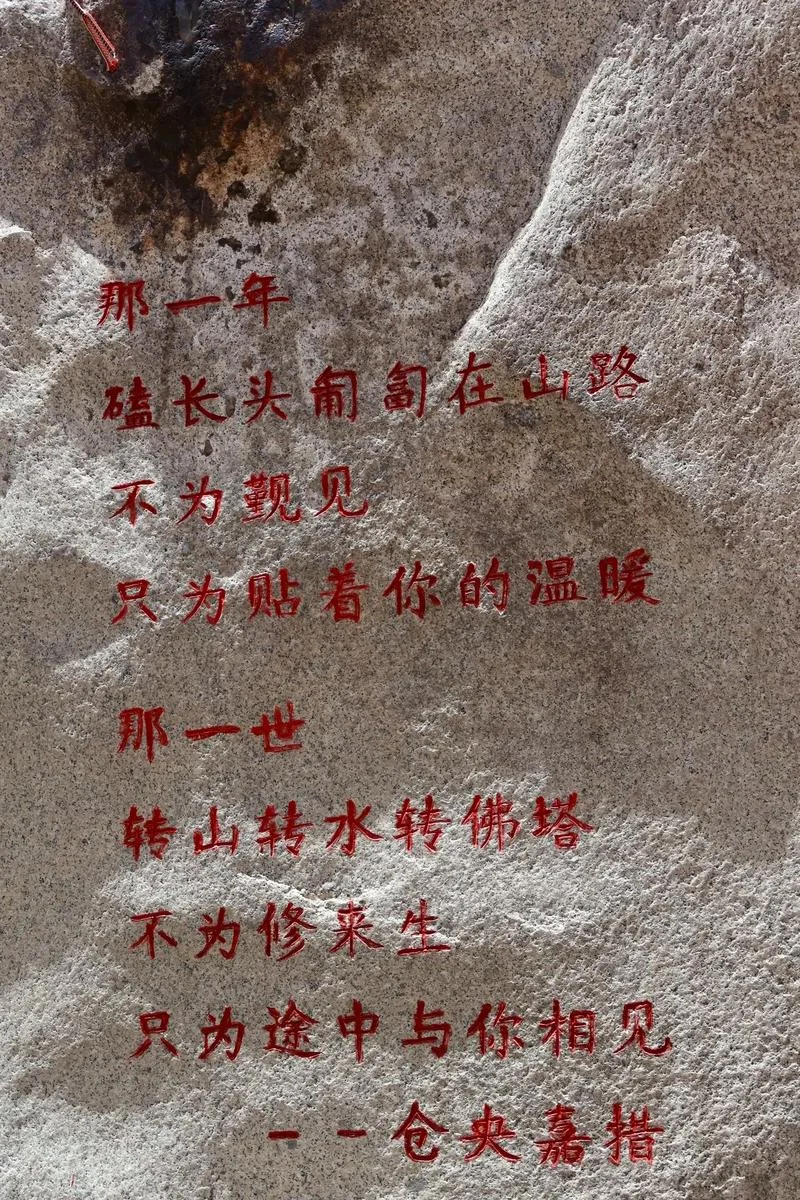 那一年
磕长头匍匐在山路
不为觐见
只为贴着你的温暖
那一世
转山转水转佛塔
不为修来生
只为途中与你相见
--仓央嘉措